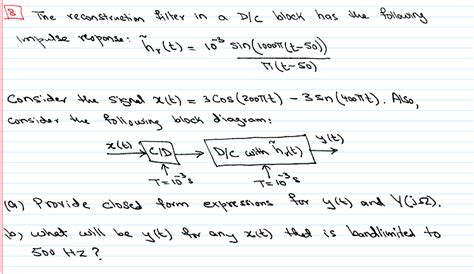 3 The reconstruction filter in a D/C block has the following
impulse response: h̃ᵣ(t) = 10⁻³ sin(1000π(t-50)) / π(t-50)
Consider the signal x(t) = 3cos(200πt) - 3sin(400πt). Also,
consider the following block diagram:
x(t) C/D D/C with h̃ᵣ(t) y(t)
T=10⁻³s T=10⁻³s
(a) Provide closed form expressions for y(t) and Y(jΩ).
(b) what will be y(t) for any x(t) that is bandlimited to
500 Hz?